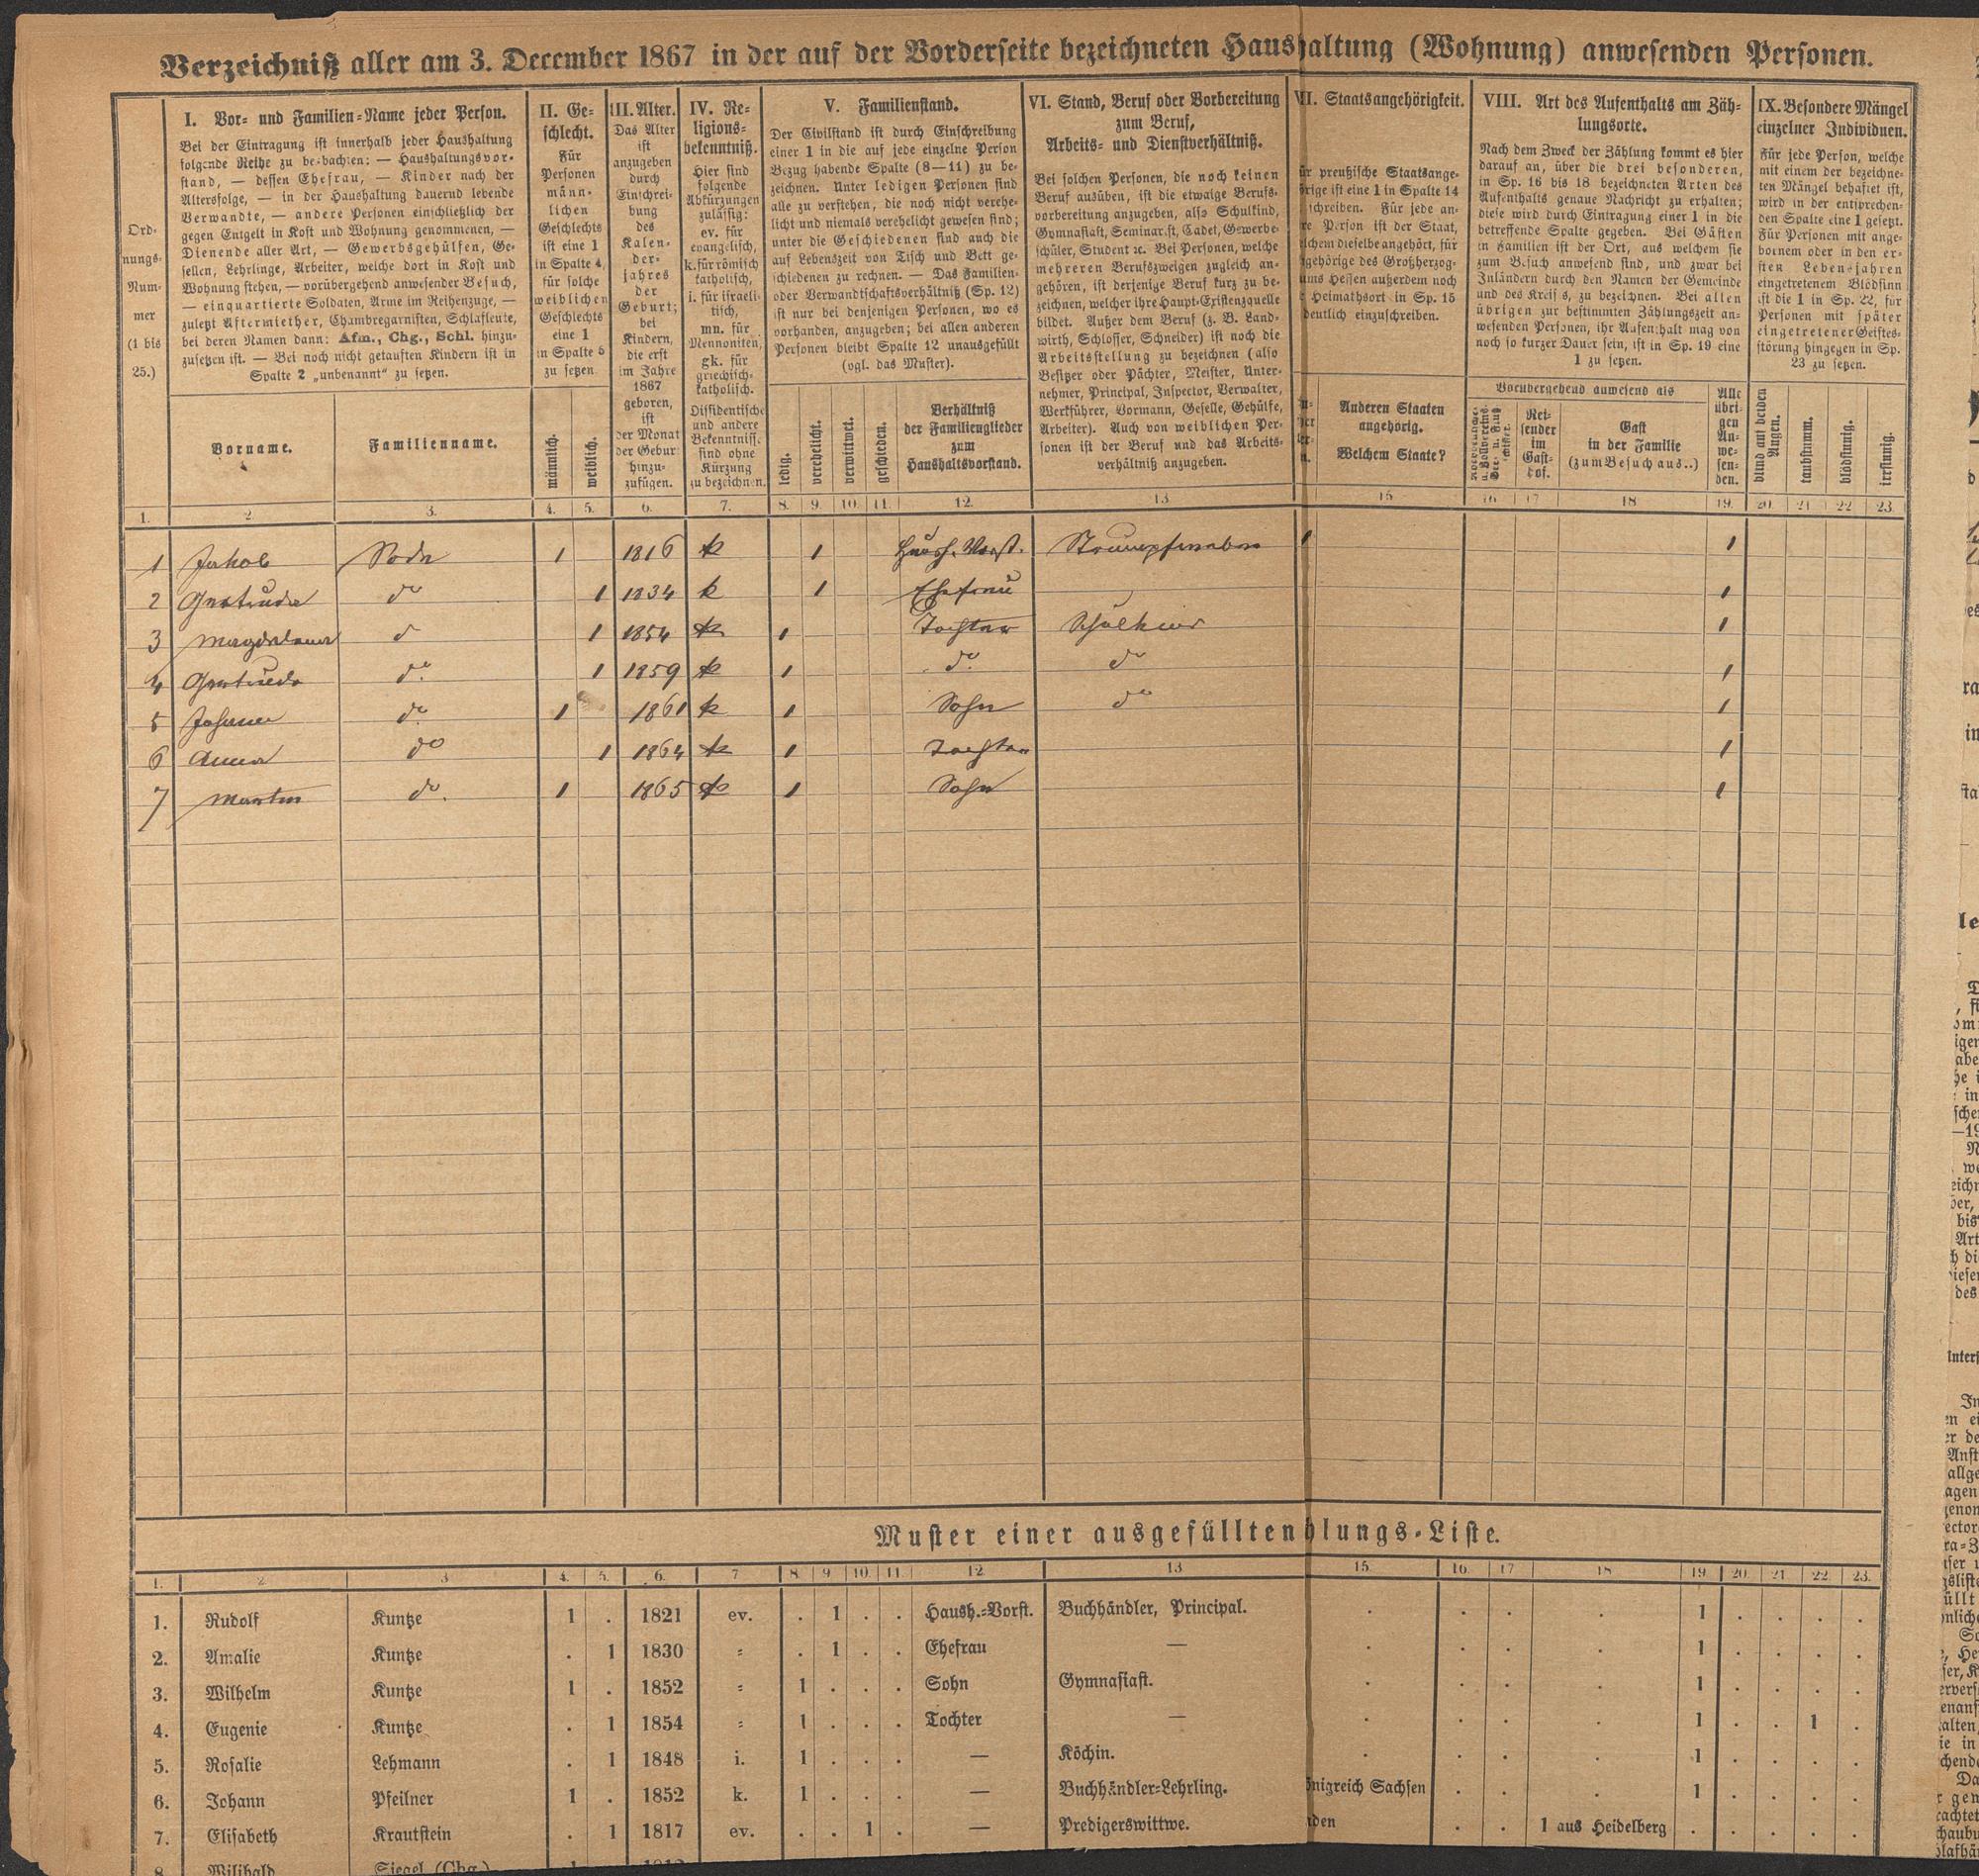 Verzeichniß aller am 3. December 1867 in der auf der Vorderseite bezeichneten Haushaltung (Wohnung) anwesenden Personen.
Ord-
nungs-
Num-
mer
(1 bis
25.)
I. Vor- und Familien-Name jeder Person.
Bei der Eintragung ist innerhalb jeder Haushaltung
folgende Reihe zu beobachten: — Haushaltungsvor-
stand, — dessen Ehefrau, — Kinder nach der
Altersfolge, — in der Haushaltung dauernd lebende
Verwandte, — andere Personen einschließlich der
gegen Entgelt in Kost und Wohnung genommenen, —
Dienende aller Art, — Gewerbsgehülfen, Ge-
sellen, Lehrlinge, Arbeiter, welche dort in Kost und
Wohnung stehen, — vorübergehend anwesender Besuch,
— einquartierte Soldaten, Arme im Reihenzuge, —
zuletzt Aftermiether, Chambregarnisten, Schlafleute,
bei deren Namen dann: Afm., Chg., Schl. hinzu-
zusetzen ist. — Bei noch nicht getauften Kindern ist in
Spalte 2 „unbenannt“ zu setzen.
Vorname.
Familienname.
II. Ge-
schlecht.
Für
Personen
männ-
lichen
Geschlechts
ist eine 1
in Spalte 4,
für solche
weiblichen
Geschlechts
eine 1
in Spalte 5
zu setzen
männlich.
weiblich.
III. Alter.
Das Alter
ist
anzugeben
durch
Einschrei-
bung
des
Kalen-
der-
jahres
der
Geburt;
bei
Kindern,
die erst
im Jahre
1867
geboren,
ist
der Monat
der Geburt
hinzu-
zufügen.
IV. Re-
ligions-
bekenntniß.
Hier sind
folgende
Abkürzungen
zulässig:
ev. für
evangelisch,
k. für römisch
katholisch,
i. für israeli-
tisch,
mn. für
Mennoniten,
gk. für
griechisch-
katholisch.
Dissidentische
und andere
Bekenntniss.
sind ohne
Kürzung
zu bezeichnen.
V. Familienstand.
Der Civilstand ist durch Einschreibung
einer 1 in die auf jede einzelne Person
Bezug habende Spalte (8—11) zu be-
zeichnen. Unter ledigen Personen sind
alle zu verstehen, die noch nicht verehe-
licht und niemals verehelicht gewesen sind;
unter die Geschiedenen sind auch die
auf Lebenszeit von Tisch und Bett ge-
schiedenen zu rechnen. — Das Familien-
oder Verwandtschaftsverhältniß (Sp. 12)
ist nur bei denjenigen Personen, wo es
vorhanden, anzugeben; bei allen anderen
Personen bleibt Spalte 12 unausgefüllt
(vgl. das Muster).
ledig.
verehelicht.
verwittwet.
geschieden.
Verhältniß
der Familienglieder
zum
Haushaltsvorstand.
VI. Stand, Beruf oder Vorbereitung
zum Beruf,
Arbeits- und Dienstverhältniß.
Bei solchen Personen, die noch keinen
Beruf ausüben, ist die etwaige Berufs-
vorbereitung anzugeben, also Schulkind,
Gymnasiast, Seminarist, Cadet, Gewerbe-
schüler, Student ꝛc. Bei Personen, welche
mehreren Berufszweigen zugleich an-
gehören, ist derjenige Beruf kurz zu be-
zeichnen, welcher ihre Haupt-Existenzquelle
bildet. Außer dem Beruf (z. B. Land-
wirth, Schlosser, Schneider) ist noch die
Arbeitsstellung zu bezeichnen (also
Besitzer oder Pächter, Meister, Unter-
nehmer, Principal, Inspector, Verwalter,
Werkführer, Vormann, Geselle, Gehülfe,
Arbeiter). Auch von weiblichen Per-
sonen ist der Beruf und das Arbeits-
verhältniß anzugeben.
VII. Staatsangehörigkeit.
ür preußische Staatsange-
örige ist eine 1 in Spalte 14
schreiben. Für jede an-
re Person ist der Staat,
lchem dieselbe angehört, für
gehörige des Großherzog-
ums Hessen außerdem noch
Heimathsort in Sp. 15
deutlich einzuschreiben.
Anderen Staaten
angehörig.
Welchem Staate?
VIII. Art des Aufenthalts am Zäh-
lungsorte.
Nach dem Zweck der Zählung kommt es hier
darauf an, über die drei besonderen,
in Sp. 16 bis 18 bezeichneten Arten des
Aufenthalts genaue Nachricht zu erhalten;
diese wird durch Eintragung einer 1 in die
betreffende Spalte gegeben. Bei Gästen
in Familien ist der Ort, aus welchem sie
zum Besuch anwesend sind, und zwar bei
Inländern durch den Namen der Gemeinde
und des Kreises, zu bezeichnen. Bei allen
übrigen zur bestimmten Zählungszeit an-
wesenden Personen, ihr Aufenthalt mag von
noch so kurzer Dauer sein, ist in Sp. 19 eine
1 zu setzen.
Vorübergehend anwesend als
Rei-
sender
im
Gast-
hof.
Gast
in der Familie
(zum Besuch aus..)
Alle
übri-
gen
An-
we-
sen-
den.
IX. Besondere Mängel
einzelner Individuen.
Für jede Person, welche
mit einem der bezeichne-
ten Mängel behaftet ist,
wird in der entsprechen-
den Spalte eine 1 gesetzt.
Für Personen mit ange-
bornem oder in den er-
sten Lebensjahren
eingetretenem Blödsinn
ist die 1 in Sp. 22, für
Personen mit später
eingetretener Geistes-
störung hingegen in Sp.
23 zu setzen.
blind auf beiden
Augen.
taubstumm.
blödsinnig.
irrsinnig.
1. 2. 3. 4. 5. 6. 7. 8. 9. 10. 11. 12. 13 15. 16. 17 18 19. 20. 21 22 23
1 Jakob 1 1816 k 1 Haush. Vorst. 1 1
2 Gertruda do 1 1834 k 1 Ehefrau 1
3 Magdalena d 1 1854 k 1 Tochter Schulkind 1
4 Gertruda do. 1 1859 k 1 do. do 1
5 Johann do. 1 1861 k 1 Sohn do 1
6 Anna do 1 1864 k 1 Tochter 1
7 Martin do. 1 1865 k 1 Sohn 1
Muster einer ausgefüllten hlungs-Liste.
1. 2 3 4. 5. 6. 7 8. 9. 10. 11. 12 13 15. 16. 17 18 19. 20. 21 22. 23.
1. Rudolf Kuntze 1 . 1821 ev. . 1 . . Haush.-Vorst. Buchhändler, Principal. . . . . 1 . . . .
2. Amalie Kuntze . 1 1830 = . 1 . . Ehefrau — . . . . 1 . . . .
3. Wilhelm Kuntze 1 . 1852 = 1 . . . Sohn Gymnasiast. . . . . 1 . . . .
4. Eugenie Kuntze . 1 1854 = 1 . . . Tochter — . . . . 1 . . 1 .
5. Rosalie Lehmann . 1 1848 i. 1 . . . — Köchin. . . . . 1 . . . .
6. Johann Pfeilner 1 . 1852 k. 1 . . . — Buchhändler-Lehrling. önigreich Sachsen . . . 1 . . . .
7. Elisabeth Krautstein . 1 1817 ev. . . 1 . — Predigerswittwe. den . . 1 aus Heidelberg . . . . .
8. Wilibald Siegel (Chg.)